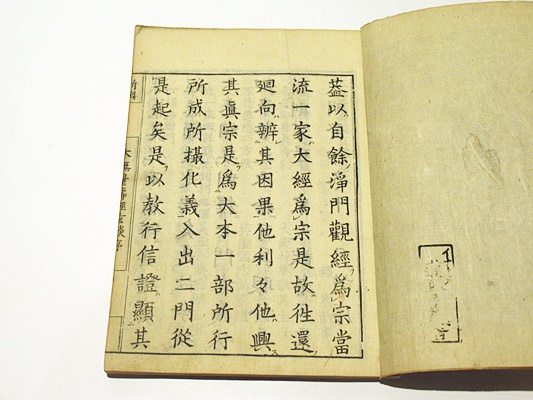 葢以自餘淨門觀經爲宗當
流一家大經爲宗是故徃還
廻向辨其因果他利々他興
其眞宗是爲大本一部所行
所成所攝化義入出二門從
是起矣是以敎行信證顯其